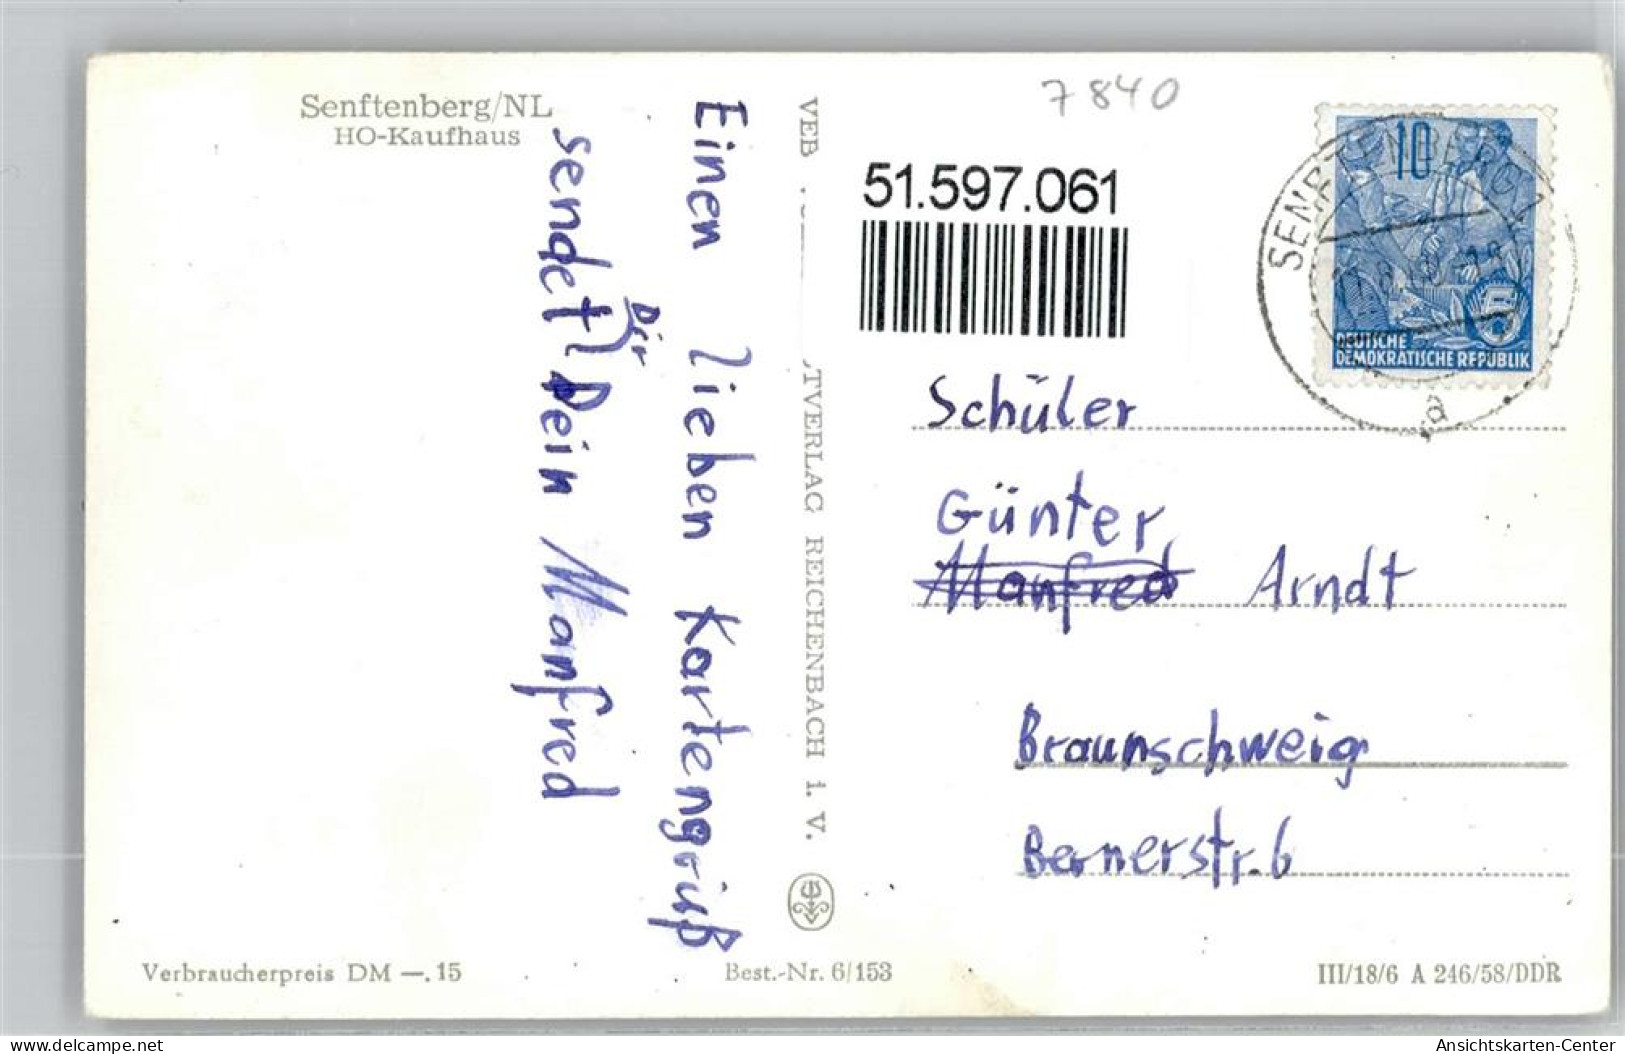 Senftenberg/NL
HO-Kaufhaus
Einen lieben Kartengruß
sendet Dir Dein Manfred
VEB
TVERLAG REICHENBACH i. V.
7840
51.597.061
SENFTENBERG
a
10
5
DEUTSCHE
DEMOKRATISCHE REPUBLIK
Schüler
Günter
Manfred Arndt
Braunschweig
Bernerstr. 6
Verbraucherpreis DM —.15
Best.-Nr. 6/153
III/18/6 A 246/58/DDR
www.delcampe.net
Ansichtskarten-Center